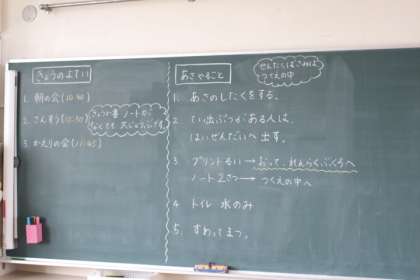 きょうのよてい
1. 朝の会(10:40)
2. さんすう(10:50)
きょうか書 ノートが
なくても 大じょうぶです。
3. かえりの会(11:45)
あさやること
せんたくばさみは
つくえの中
1. あさのしたくをする。
2 てい出ぶつがある人は、
はいぜんだいへ出す。
3 プリントるい→おって、れんらくぶくろへ
ノート2さつ→つくえの中へ
4 トイレ 水のみ
5. すわってまつ。